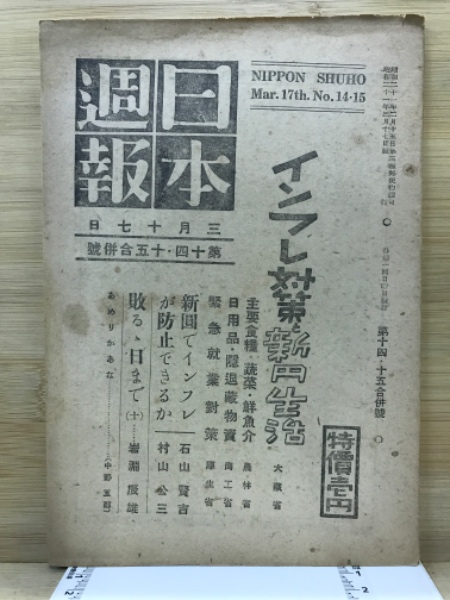 日本週報
NIPPON SHUHO
Mar. 17th. No. 14-15
三月十七日
第十四・十五合併號
インフレ対策と新円生活
大蔵省
主要食糧・蔬菜・鮮魚介
農林省
日用品・隠退蔵物資
商工省
緊急就業対策
厚生省
新圓でインフレが防止できるか
石山賢吉
村山公三
敗るゝ日まで(十)……岩淵辰雄
あめりかあな
(中野五郎)
特價壱円
第十四・十五合併號
1
2
1
2